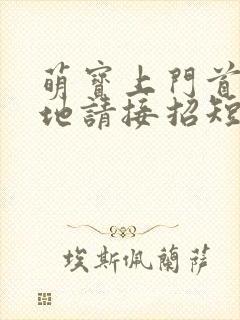 萌寶上門首
地請接招短
埃斯佩蘭薩